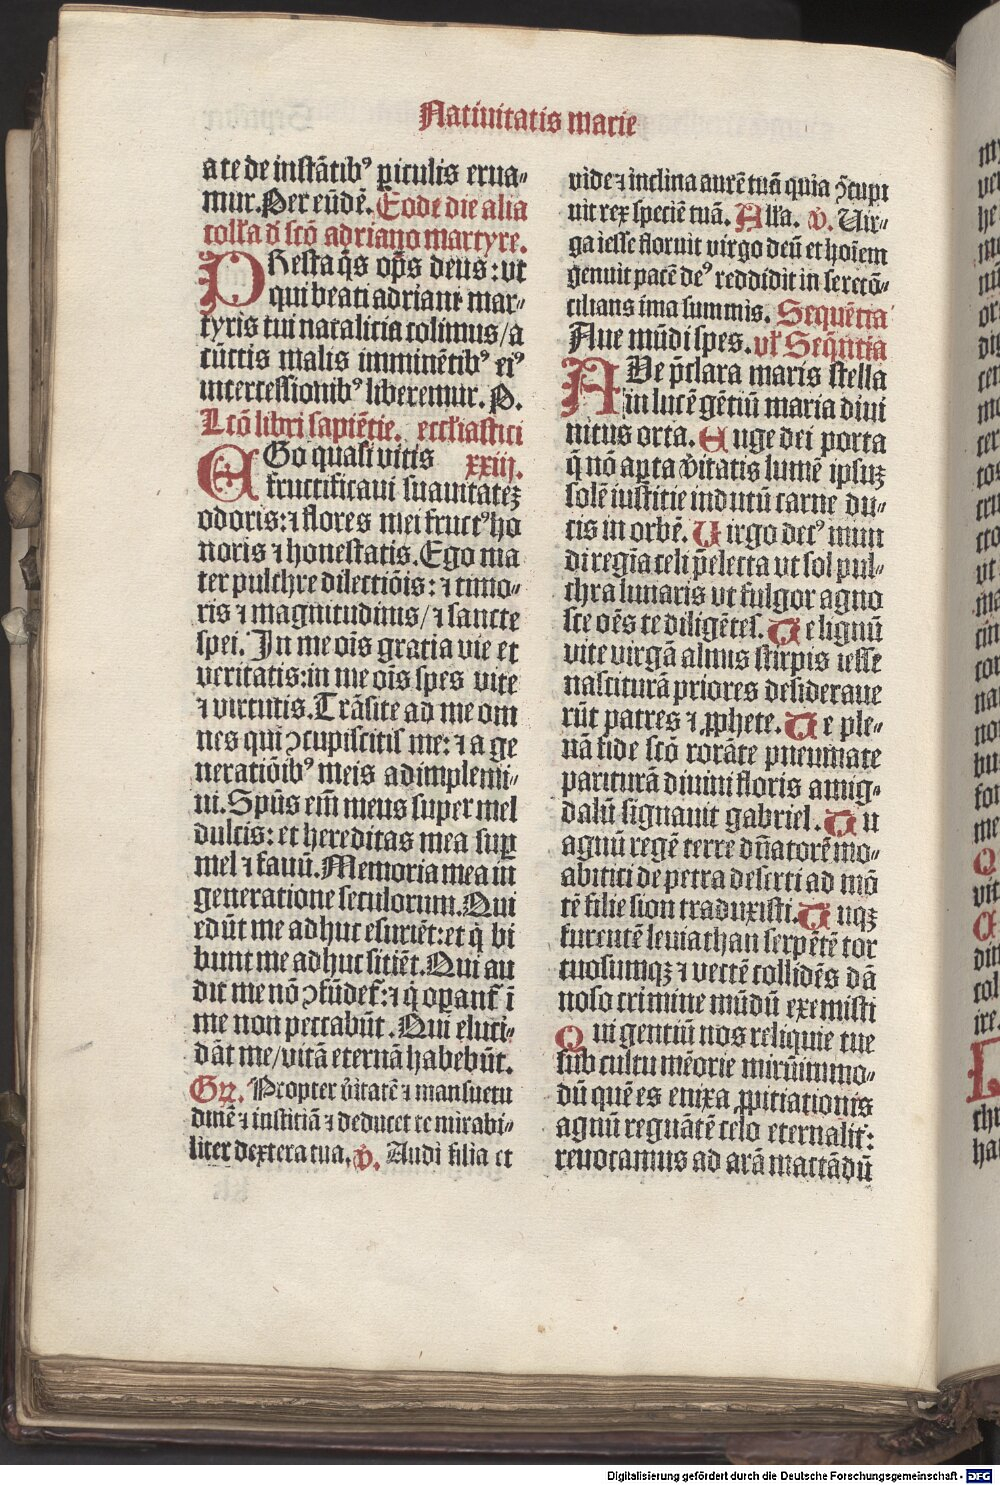 Natiuitatis marie
a te de instãtibꝰ ꝑiculis erua⸗
mur. Per eũdẽ. Eodẽ die alia
coll̃a d̃ scõ adriano martyre.
PResta q̃s op̃s deus: vt
qui beati adriani mar⸗
tyris tui natalicia colimus/a
cũctis malis imminẽtibꝰ eiꝰ
intercessionibꝰ liberemur. P.
Lcõ libri sapiẽtie. eccl̃iastici
EGo quasi vitis xxiij.
fructificaui suauitatẽ
odoris: ⁊ flores mei fructꝰ ho
noris ⁊ honestatis. Ego ma
ter pulchre dilectiõis: ⁊ timo⸗
ris ⁊ magnitudinis/⁊ sancte
spei. In me oĩs gratia vie et
veritatis: in me oĩs spes vite
⁊ virtutis. Trãsite ad me om
nes qui ꝯcupiscitis me: ⁊ a ge
neratiõibꝰ meis adimplemi⸗
ni. Spũs em̃ meus super mel
dulcis: et hereditas mea suꝑ
mel ⁊ fauũ. Memoria mea in
generatione seculorum. Qui
edũt me adhuc esuriẽt: et q̃ bi
bunt me adhuc sitiẽt. Qui au
dit me nõ ꝯfũdet̃: ⁊ q̃ oꝑant̃ ĩ
me non peccabũt. Qui eluci⸗
dãt me/vitã eternã habebũt.
Gꝛ. Propter ṽitatẽ ⁊ mansuetu
dinẽ ⁊ iusticiã ⁊ deducet te mirabi⸗
liter dextera tua. ꝟ. Audi filia et
vide ⁊ inclina aurẽ tuã quia ꝯcupi
uit rex speciẽ tuã. All̃a. ꝟ. Uir⸗
ga iesse floruit virgo deũ et hoĩem
genuit pacẽ deꝰ reddidit in se recõ⸗
cilians ima summis. Sequẽtia
Aue mũdi spes. vl̃ Seq̃ntia
AUe p̃clara maris stella
in lucẽ gẽtiũ maria diui
nitus orta. Euge dei porta
q̃ nõ aꝑta ṽitatis lumẽ ipsuꝫ
solẽ iustitie indutũ carne du⸗
cis in orbẽ. Uirgo decꝰ mun
di regĩa celi p̃electa vt sol pul⸗
chra lunaris vt fulgor agno
sce oẽs te diligẽtes. Te lignũ
vite virgã almus stirpis iesse
nasciturã priores desideraue
rũt patres ⁊ ꝓphete. Te ple⸗
nã fide scõ rorãte pneumate
parituꝛã diuini floris amig⸗
dalũ signauit gabriel. Tu
agnũ regẽ terre dñatorẽ mo⸗
abitici de petra deserti ad mõ
tẽ filie sion traduxisti. Tuqꝫ
furentẽ leuiathan serpẽtẽ tor
tuosumqꝫ ⁊ vectẽ collidẽs dã
noso crimine mũdũ exemisti
Qui gentiũ nos reliquie tue
sub cultu mẽorie mirũimmo⸗
dũ quẽ es enixa ꝓpitiationis
agnũ regnãtẽ celo eternalit̃:
reuocamus ad arã mactãdũ
Digitalisierung gefördert durch die Deutsche Forschungsgemeinschaft - DFG